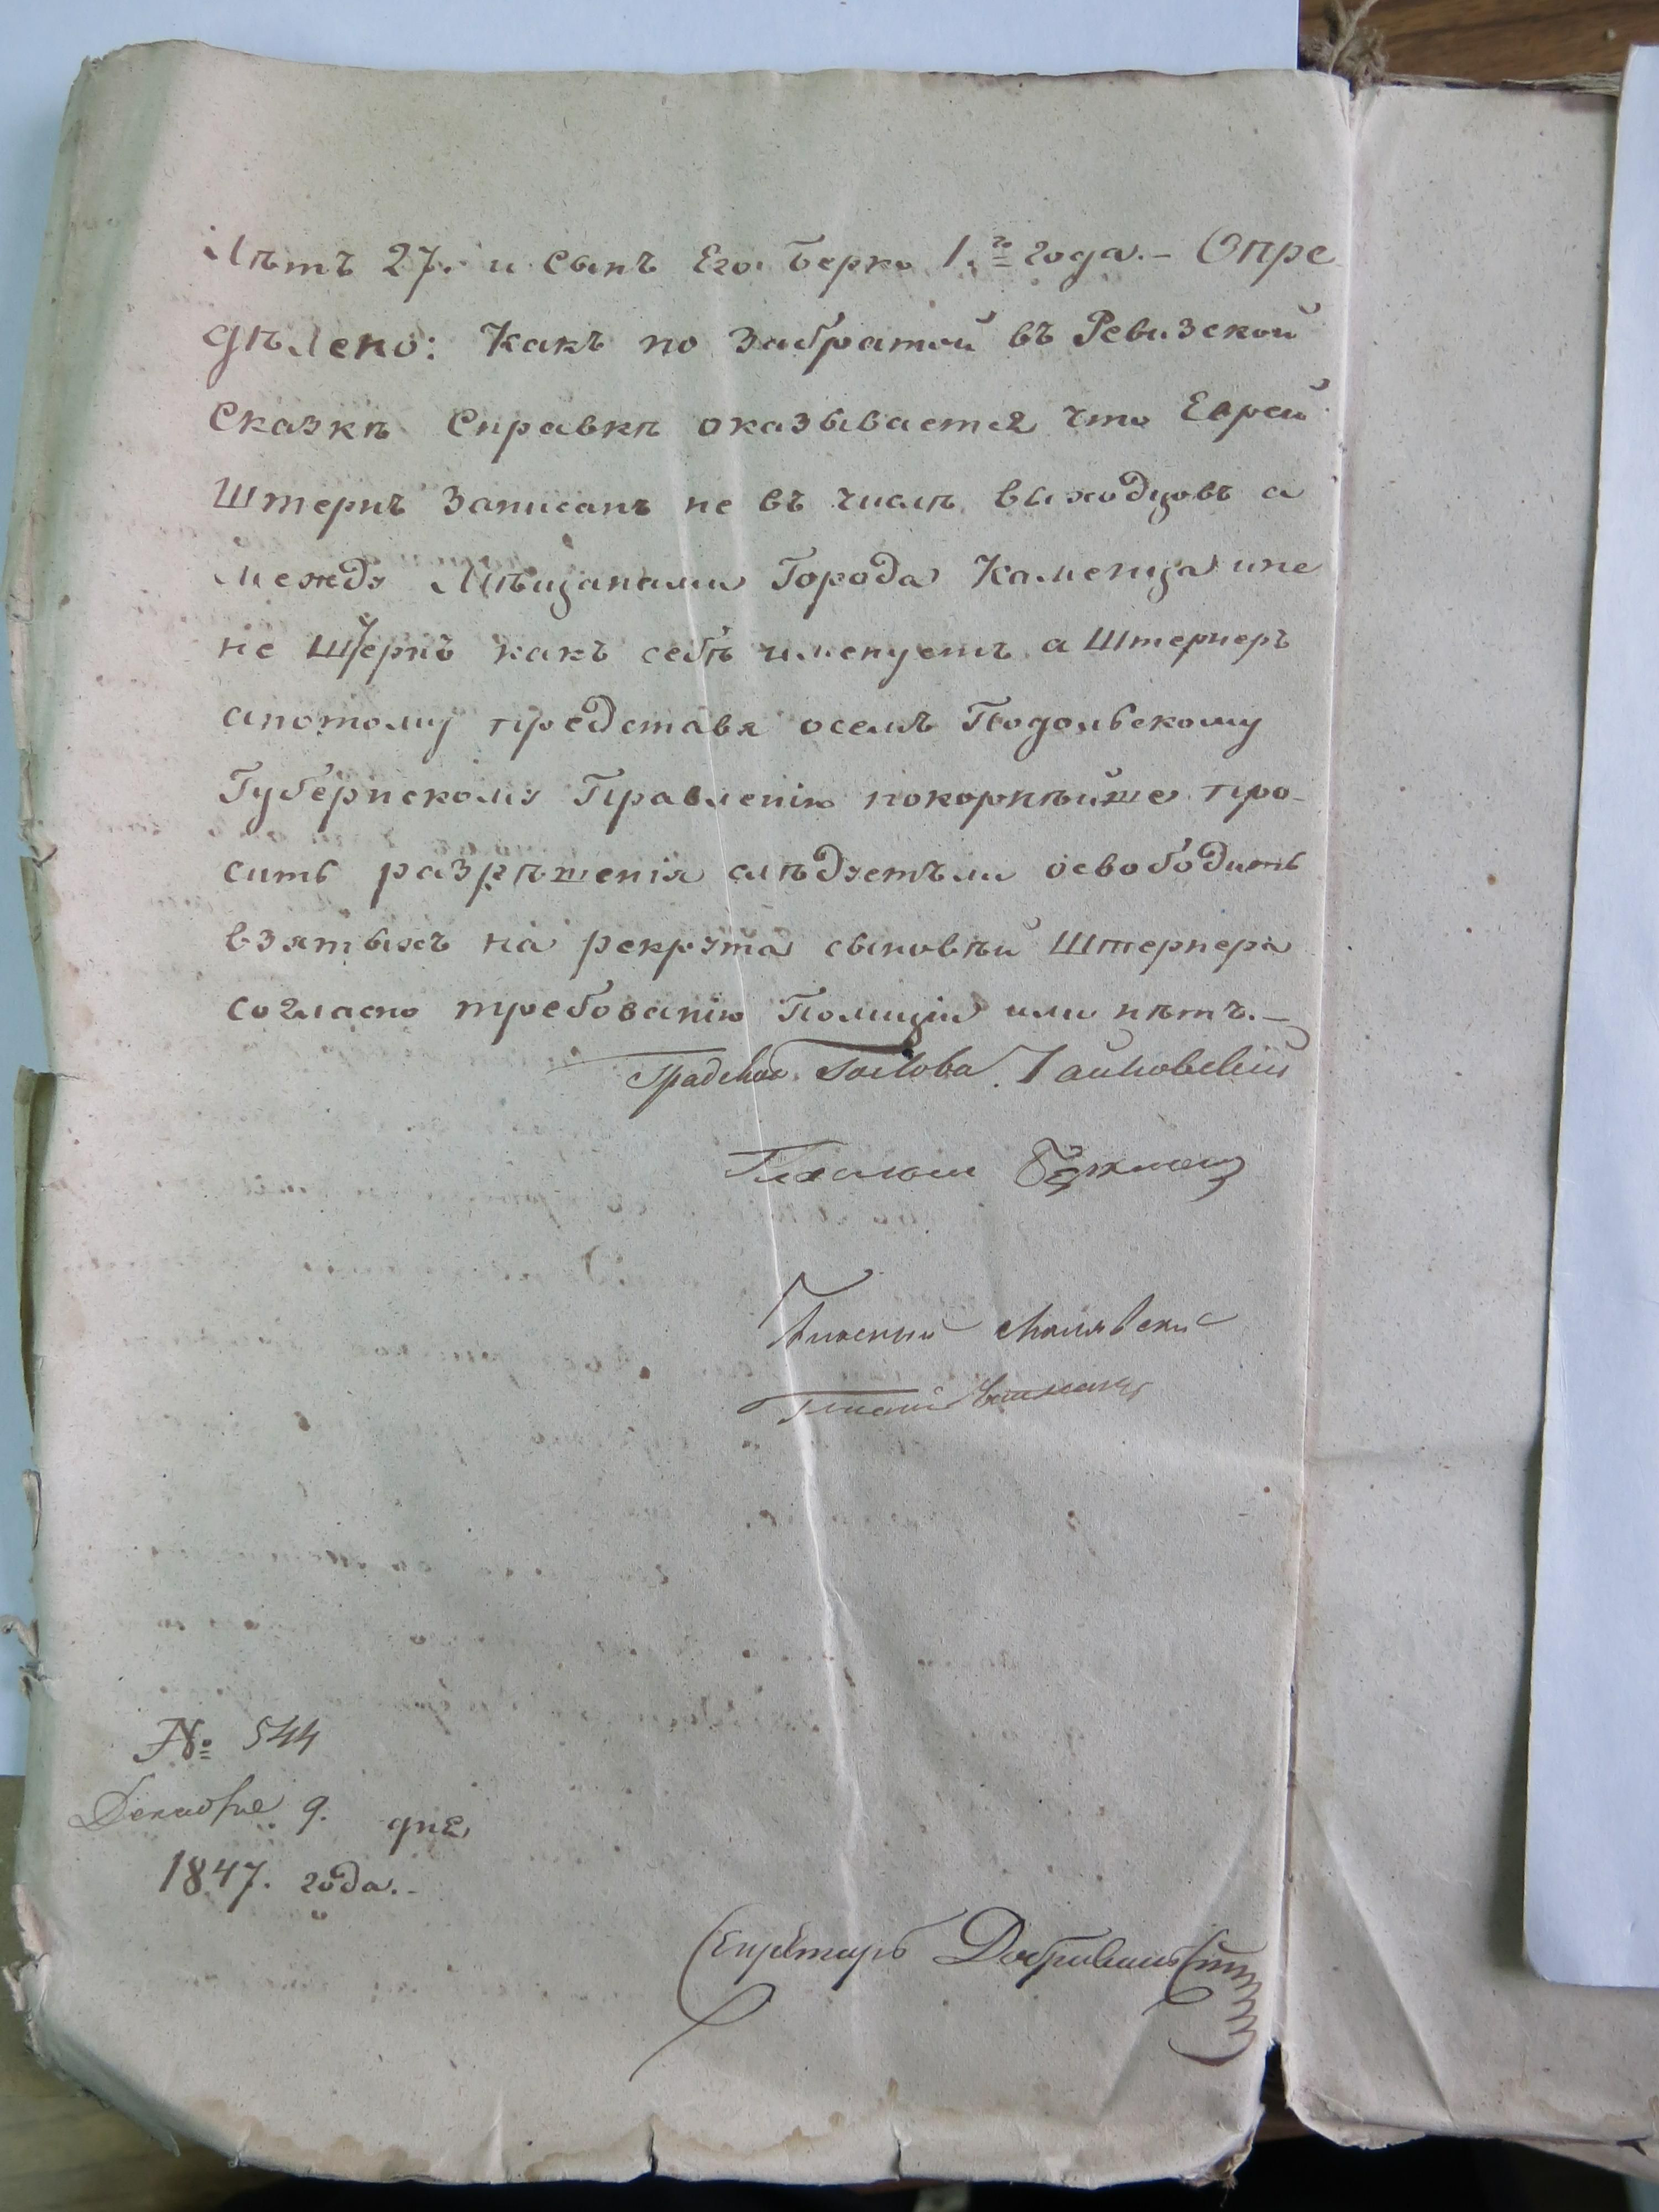 Лѣтъ 27. и сынъ Его Берко 1.го года.– Опре
дѣлено: Какъ по забратой въ Ревизской
Сказкѣ Справкѣ оказывается что Еврей
Штернъ Записанъ не въ числѣ выходцовъ а
между Мѣщанами Города Каменца ине
не Штернъ какъ себѣ именуетъ а Штернеръ
апотому представя осемъ Подольскому
Губернскому Правленію покорнѣйше про-
сить разрѣшенія слѣдуетъли освободить
взятыхъ на рекрута сыновѣй Штернера
согласно требованію Полиціи или нѣтъ.–
Градской Голова
№ 544
Декабря 9. дня
1847. года.-
Секретарь